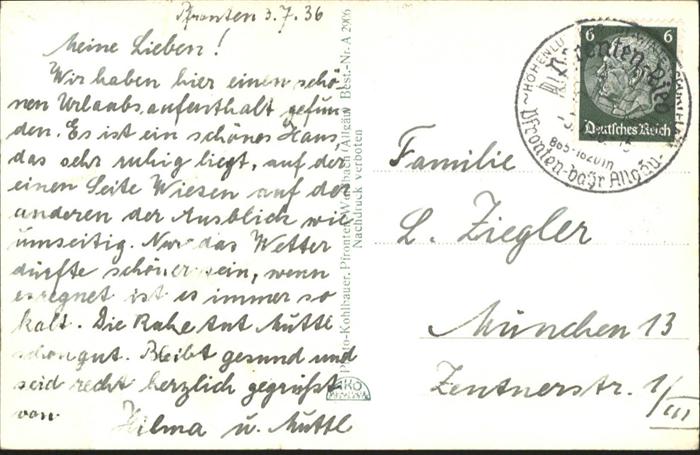 Pfronten 3.7.36
Meine Lieben!
Wir haben hier einen schö-
nen Urlaubsaufenthalt gefun
den. Es ist ein schönes Haus,
das sehr ruhig liegt, auf der
einen Seite Wiesen auf der
anderen der Ausblick wie
umseitig. Nur das Wetter
dürfte schöner sein, wenn
es regnet ist es immer so
kalt. Die Ruhe tut Muttl
schon gut. Bleibt gesund und
seid recht herzlich gegrüßt
von
Hilma u. Muttl
Photo-Kohlbauer, Pfronten-Weissbach/Allgäu Best.-Nr. A 2906
Nachdruck verboten
6 6
Deutsches Reich
Pfronten-Ried
863-1820m
Pfronten-bayr Allgäu
Familie
L. Ziegler
München 13
Zentnerstr. 1/III